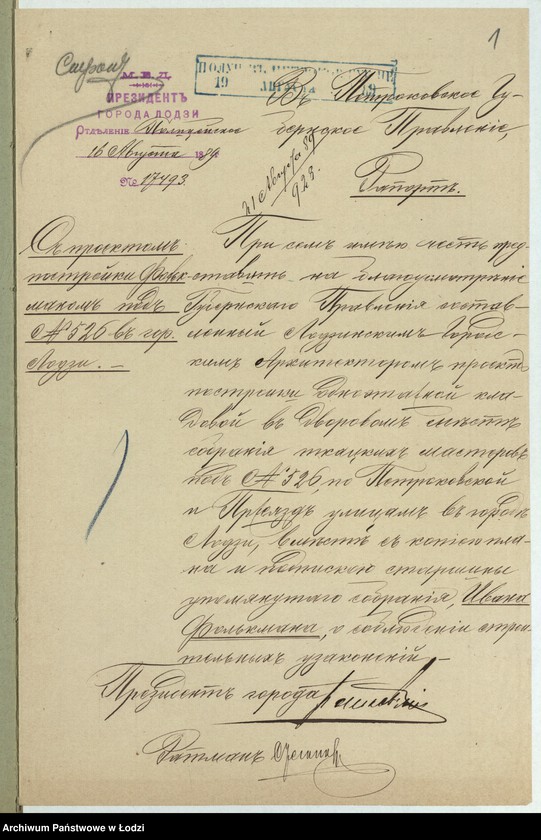 1
М. В. Д.
ПРЕЗИДЕНТЪ
ГОРОДА ЛОДЗИ
Отдѣленіе Полицейское
16 Августа 1889
№ 17493.
19 АВГУСТА 19
Въ Петроковское Гу-
бернское Правленіе,
21 Августа 89
928.
Рапортъ.
Съ проктомъ
постройки Фольк
маномъ подъ
№ 526 въ гор.
Лодзи. —
При семъ имѣю честь пред-
ставить на благоусмотрѣніе
Губернскаго Правленія состав-
ленный Лодзинскимъ Городс-
кимъ Архитекторомъ проектъ
постройки одноэтажной кла-
довой въ дворовомъ мѣстѣ
собранія ткацкихъ мастеровъ
подъ № 526, по Петроковской
и Пріѣздъ улицамъ въ городѣ
Лодзи, вмѣстѣ съ копіею пла-
на и подпискою старшины
упомянутаго собранія, Ивана
Фолькмана, о соблюденіи строи-
тельныхъ узаконеній. —
Президентъ города
Ратманъ
Archiwum Państwowe w Łodzi